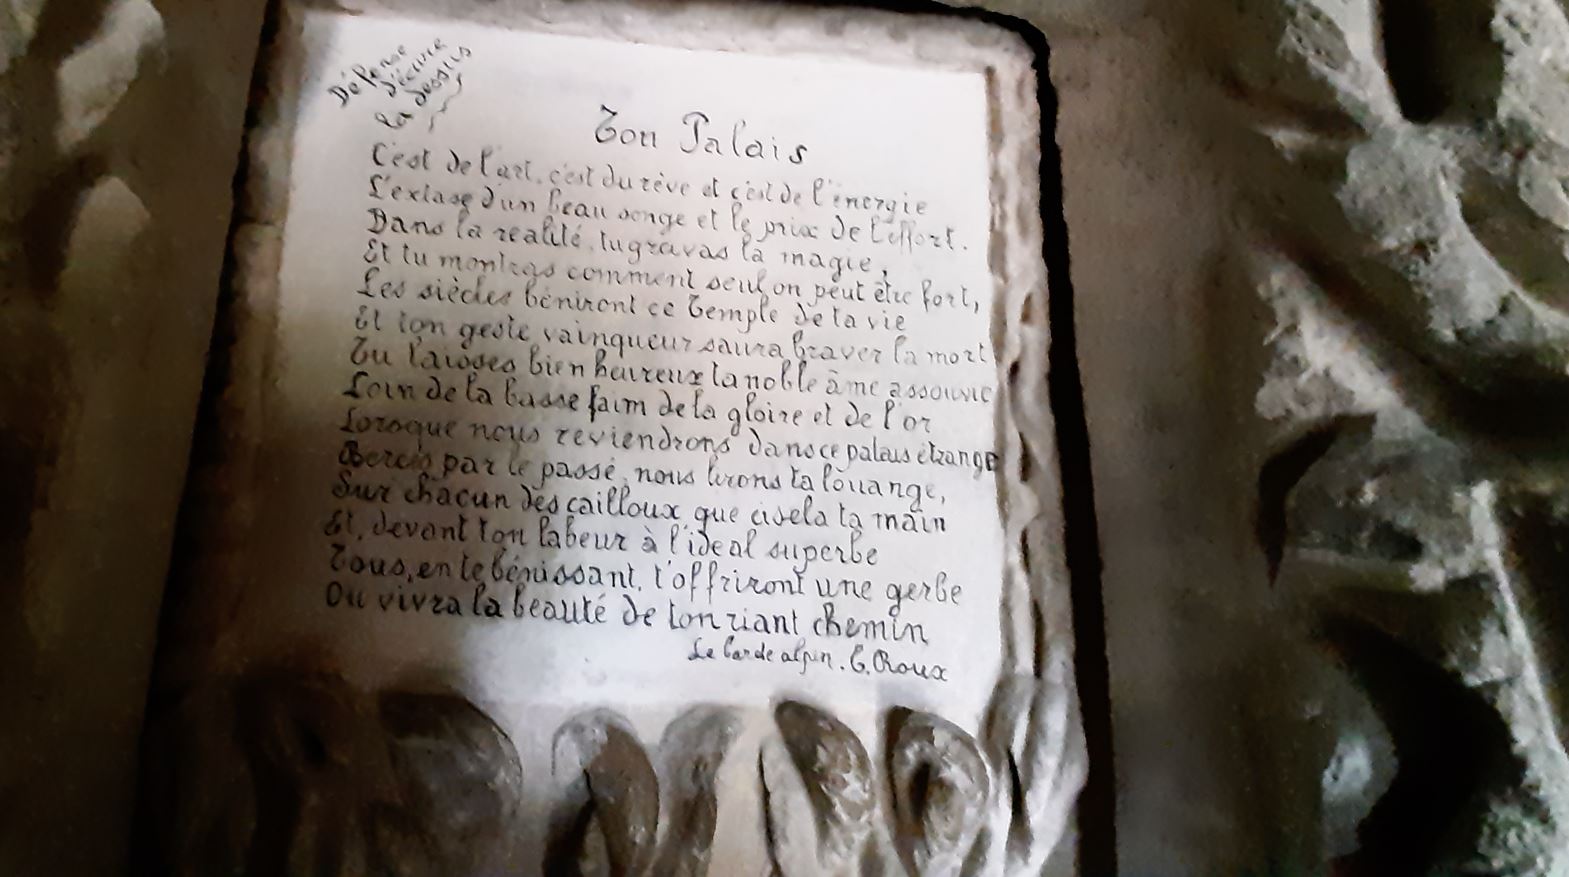 Défense
d'écrire
là dessus
Ton Palais
C'est de l'art, c'est du rêve et c'est de l'énergie
L'extase d'un beau songe et le prix de l'effort.
Dans la réalité, tu gravas la magie,
Et tu montras comment seul on peut être fort,
Les siècles béniront ce Temple de la vie
Et ton geste vainqueur saura braver la mort
Tu laisses bienheureux ta noble âme assouvie
Loin de la basse faim de la gloire et de l'or
Lorsque nous reviendrons dans ce palais étrange
Bercés par le passé, nous lirons ta louange,
Sur chacun des cailloux que cisela ta main
Et, devant ton labeur à l'idéal superbe
Tous, en te bénissant, t'offriront une gerbe
Ou vivra la beauté de ton riant chemin
Le barde alpin. E. Roux